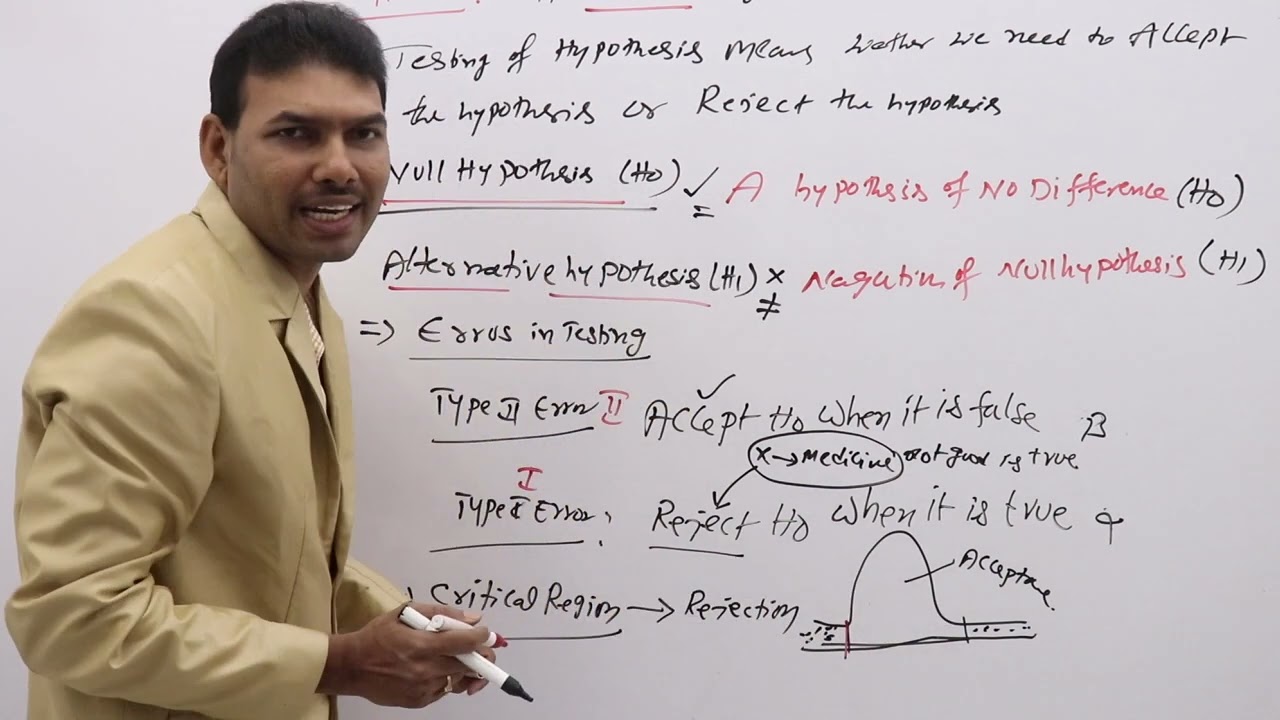 Testing of Hypothesis Means wether we need to Accept
the hypothesis or Reject the hypothesis
Null Hypothesis (H0) ✓ = A hypothesis of No Difference (H0)
Alternative hypothesis (H1) × ≠ Nagation of Null hypothesis (H1)
=> Errors in Testing
Type II Error II Accept H0 when it is false β
x → Medicine not good is true
I
Type I Error : Reject H0 when it is true α
Acceptance
Critical Region → Rejection